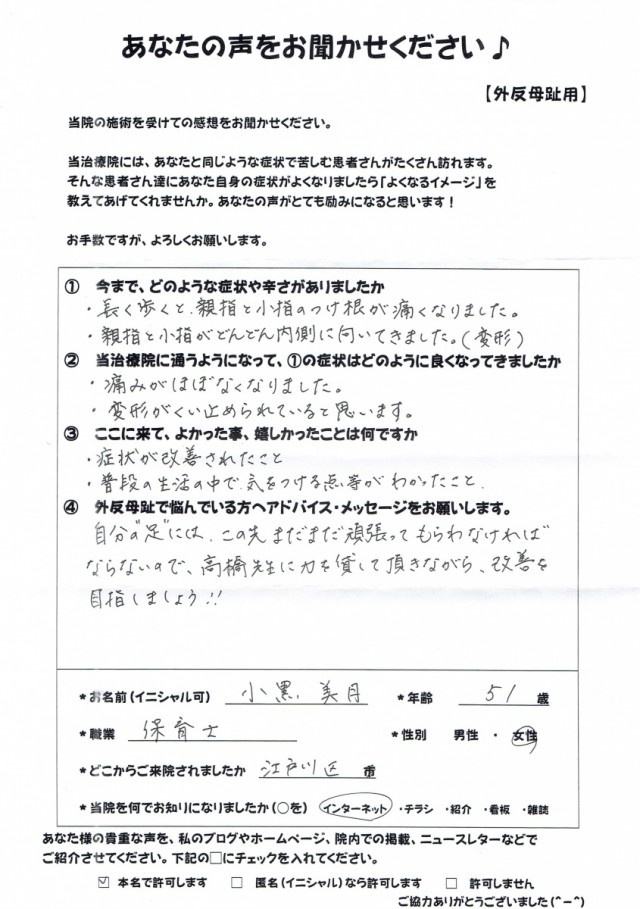 あなたの声をお聞かせください♪
【外反母趾用】
当院の施術を受けての感想をお聞かせください。
当治療院には、あなたと同じような症状で苦しむ患者さんがたくさん訪れます。
そんな患者さん達にあなた自身の症状がよくなりましたら「よくなるイメージ」を
教えてあげてくれませんか。あなたの声がとても励みになると思います！
お手数ですが、よろしくお願いします。
① 今まで、どのような症状や辛さがありましたか
・長く歩くと、親指と小指のつけ根が痛くなりました。
・親指と小指がどんどん内側に向いてきました。(変形)
② 当治療院に通うようになって、①の症状はどのように良くなってきましたか
・痛みがほぼなくなりました。
・変形がくい止められていると思います。
③ ここに来て、よかった事、嬉しかったことは何ですか
・症状が改善されたこと
・普段の生活の中で気をつける点等がわかったこと.
④ 外反母趾で悩んでいる方へアドバイス・メッセージをお願いします。
自分の"足"には、この先まだまだ頑張ってもらわなければ
ならないので、高橋先生に力を貸して頂きながら、改善を
目指しましょう!!
*お名前(イニシャル可) 小黒 美月 *年齢 51 歳
*職業 保育士 *性別 男性 ・ 女性
*どこからご来院されましたか 江戸川区 市
*当院を何でお知りになりましたか(○を) インターネット ・チラシ ・紹介 ・看板 ・雑誌
あなた様の貴重な声を、私のブログやホームページ、院内での掲載、ニュースレターなどで
ご紹介させてください。下記の□にチェックを入れてください。
☑ 本名で許可します □ 匿名(イニシャル)なら許可します □ 許可しません
ご協力ありがとうございました(^-^)